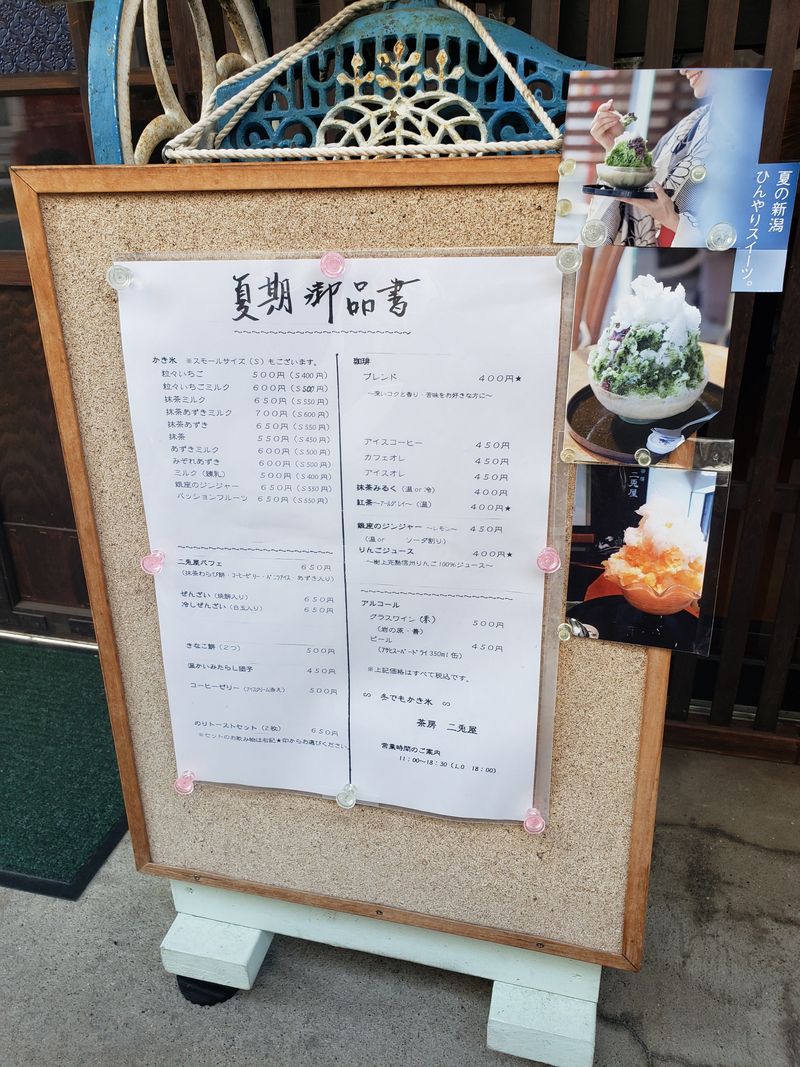 夏期 御品書
かき氷 ※スモールサイズ(S)もございます。
粒々いちご 500円(S400円)
粒々いちごミルク 600円(S500円)
抹茶ミルク 650円(S550円)
抹茶あずきミルク 700円(S600円)
抹茶あずき 650円(S550円)
抹茶 550円(S450円)
あずきミルク 600円(S500円)
みぞれあずき 600円(S500円)
ミルク(練乳) 500円(S400円)
銀座のジンジャー 650円(S550円)
パッションフルーツ 650円(S550円)
二兎屋パフェ 650円
(抹茶わらび餅・コーヒーゼリー・バニラアイス・あずき入り)
ぜんざい(焼餅入り) 650円
冷しぜんざい(白玉入り) 650円
きなこ餅(2つ) 500円
温かいみたらし団子 450円
コーヒーゼリー(アイスクリーム添え) 500円
のりトーストセット(2枚) 650円
※セットのお飲み物は右記★印からお選びください。
珈琲
ブレンド 400円★
~深いコクと香り・苦味をお好きな方に~
アイスコーヒー 450円
カフェオレ 450円
アイスオレ 450円
抹茶みるく(温or冷) 400円
紅茶~アールグレイ~(温) 400円★
銀座のジンジャー ~レモン~ 450円
(温or ソーダ割り)
りんごジュース 400円★
~樹上完熟信州りんご100%ジュース~
アルコール
グラスワイン(赤) 500円
(岩の原・善)
ビール 450円
(アサヒスーパードライ350ml缶)
※上記価格はすべて税込です。
∽ 冬でもかき氷 ∽
茶房 二兎屋
営業時間のご案内
11:00~18:30(LO 18:00)
夏の新潟
ひんやりスイーツ。
二兎屋